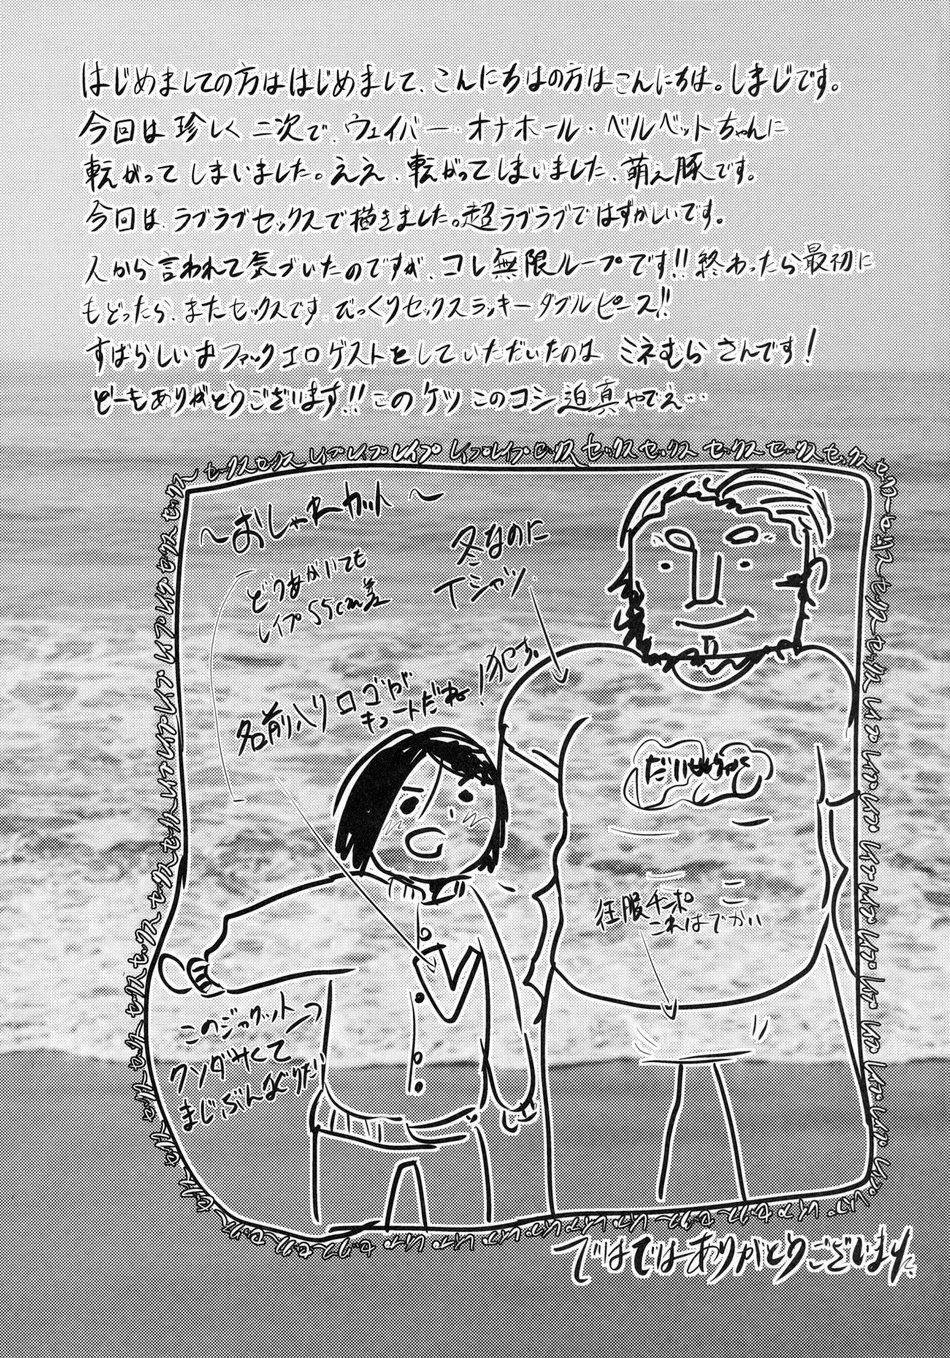 はじめましての方ははじめまして、こんにちはの方はこんにちは。しまじです。
今回は珍しく二次で、ウェイバー・オナホール・ベルベットちゃんに
転がってしまいました。ええ、転がってしまいました、萌え豚です。
今回は、ラブラブセックスで描きました。超ラブラブではずかしいです。
人から言われて気づいたのですが、コレ無限ループです!!終わったら最初に
もどったら、またセックスです びっくりセックスラッキーダブルピース!!
すばらしいおファックエロゲストをしていただいたのは ミネむらさんです!
どーもありがとうございます!!このケツこのコシ迫真やでえ…
~おしゃれカット~
どうあがいても
レイプ55cm差
冬なのに
Tシャツ
名前入りロゴが
キュートだね!犯す。
征服チンポ
これはでかい
このジャケット
クソダサくて
まじぶんなぐりだ
ではではありがとうございました